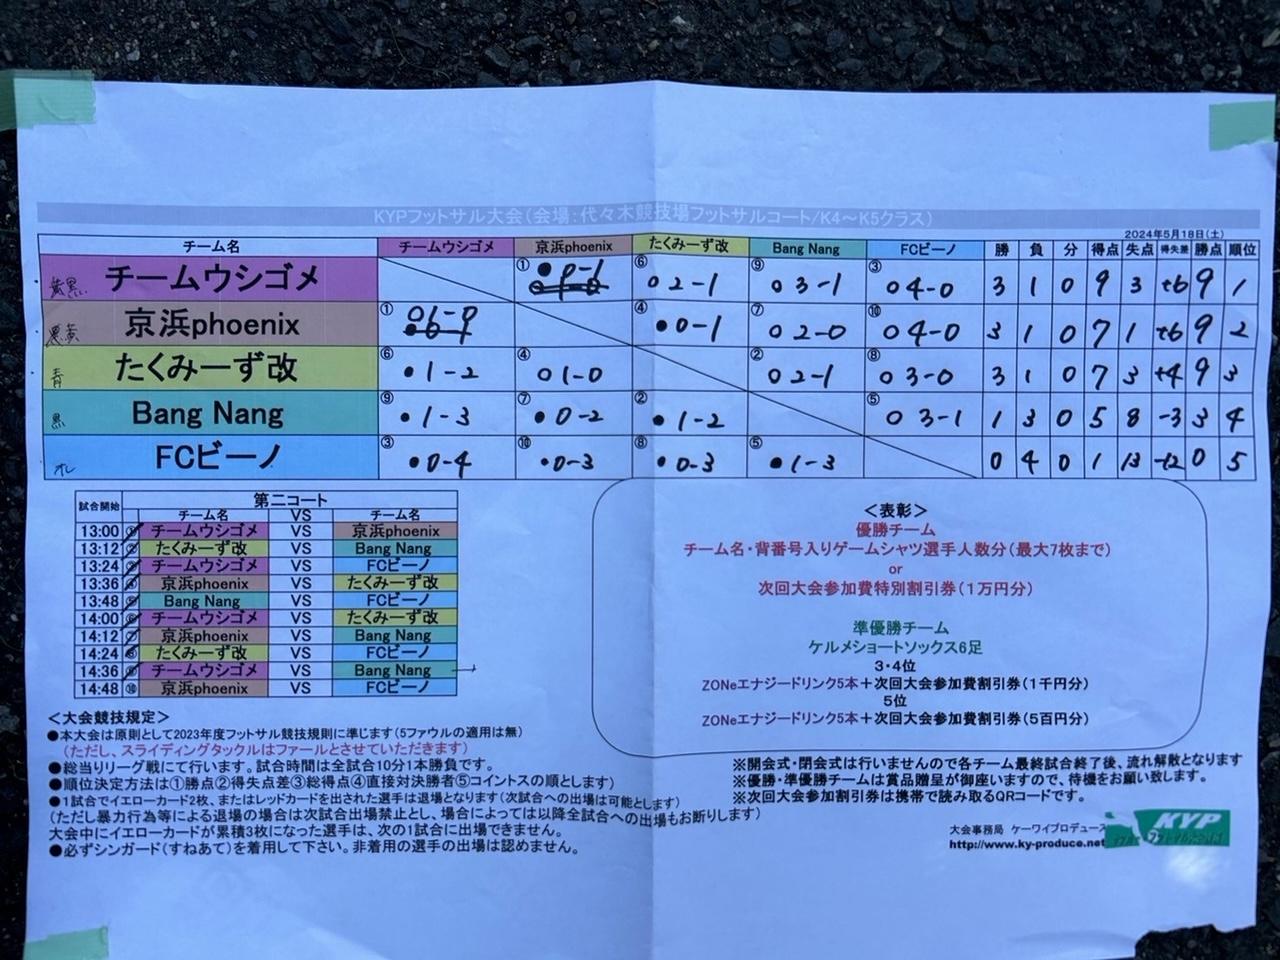 KYPフットサル大会(会場:代々木競技場フットサルコート/K4～K5クラス)
2024年5月18日(土)
チーム名 チームウシゴメ 京浜phoenix たくみーず改 Bang Nang FCビーノ 勝 負 分 得点 失点 得失差 勝点 順位
黄黒 チームウシゴメ ① ● 0-1 ⑥ ○ 2-1 ⑨ ○ 3-1 ③ ○ 4-0 3 1 0 9 3 +6 9 1
京浜phoenix ① ○ 1-0 ④ ● 0-1 ⑦ ○ 2-0 ⑩ ○ 4-0 3 1 0 7 1 +6 9 2
青 たくみーず改 ⑥ ● 1-2 ④ ○ 1-0 ② ○ 2-1 ⑧ ○ 3-0 3 1 0 7 3 +4 9 3
黒 Bang Nang ⑨ ● 1-3 ⑦ ● 0-2 ② ● 1-2 ⑤ ○ 3-1 1 3 0 5 8 -3 3 4
オレ FCビーノ ③ ● 0-4 ⑩ ● 0-3 ⑧ ● 0-3 ⑤ ● 1-3 0 4 0 1 13 -12 0 5
試合開始 第二コート
チーム名 VS チーム名
13:00 ① チームウシゴメ VS 京浜phoenix
13:12 ② たくみーず改 VS Bang Nang
13:24 ③ チームウシゴメ VS FCビーノ
13:36 ④ 京浜phoenix VS たくみーず改
13:48 ⑤ Bang Nang VS FCビーノ
14:00 ⑥ チームウシゴメ VS たくみーず改
14:12 ⑦ 京浜phoenix VS Bang Nang
14:24 ⑧ たくみーず改 VS FCビーノ
14:36 ⑨ チームウシゴメ VS Bang Nang
14:48 ⑩ 京浜phoenix VS FCビーノ
<表彰>
優勝チーム
チーム名・背番号入りゲームシャツ選手人数分(最大7枚まで)
or
次回大会参加費特別割引券(1万円分)
準優勝チーム
ケルメショートソックス6足
3・4位
ZONeエナジードリンク5本+次回大会参加費割引券(1千円分)
5位
ZONeエナジードリンク5本+次回大会参加費割引券(5百円分)
<大会競技規定>
●本大会は原則として2023年度フットサル競技規則に準じます(5ファウルの適用は無)
(ただし、スライディングタックルはファールとさせていただきます)
●総当りリーグ戦にて行います。試合時間は全試合10分1本勝負です。
●順位決定方法は①勝点②得失点差③総得点④直接対決勝者⑤コイントスの順とします)
●1試合でイエローカード2枚、またはレッドカードを出された選手は退場となります(次試合への出場は可能とします)
(ただし暴力行為等による退場の場合は次試合出場禁止とし、場合によっては以降全試合への出場もお断りします)
大会中にイエローカードが累積3枚になった選手は、次の1試合に出場できません。
●必ずシンガード(すねあて)を着用して下さい。非着用の選手の出場は認めません。
※開会式・閉会式は行いませんので各チーム最終試合終了後、流れ解散となります
※優勝・準優勝チームは賞品贈呈が御座いますので、待機をお願い致します。
※次回大会参加割引券は携帯で読み取るQRコードです。
大会事務局 ケーワイプロデュース
http://www.ky-produce.net
KYP